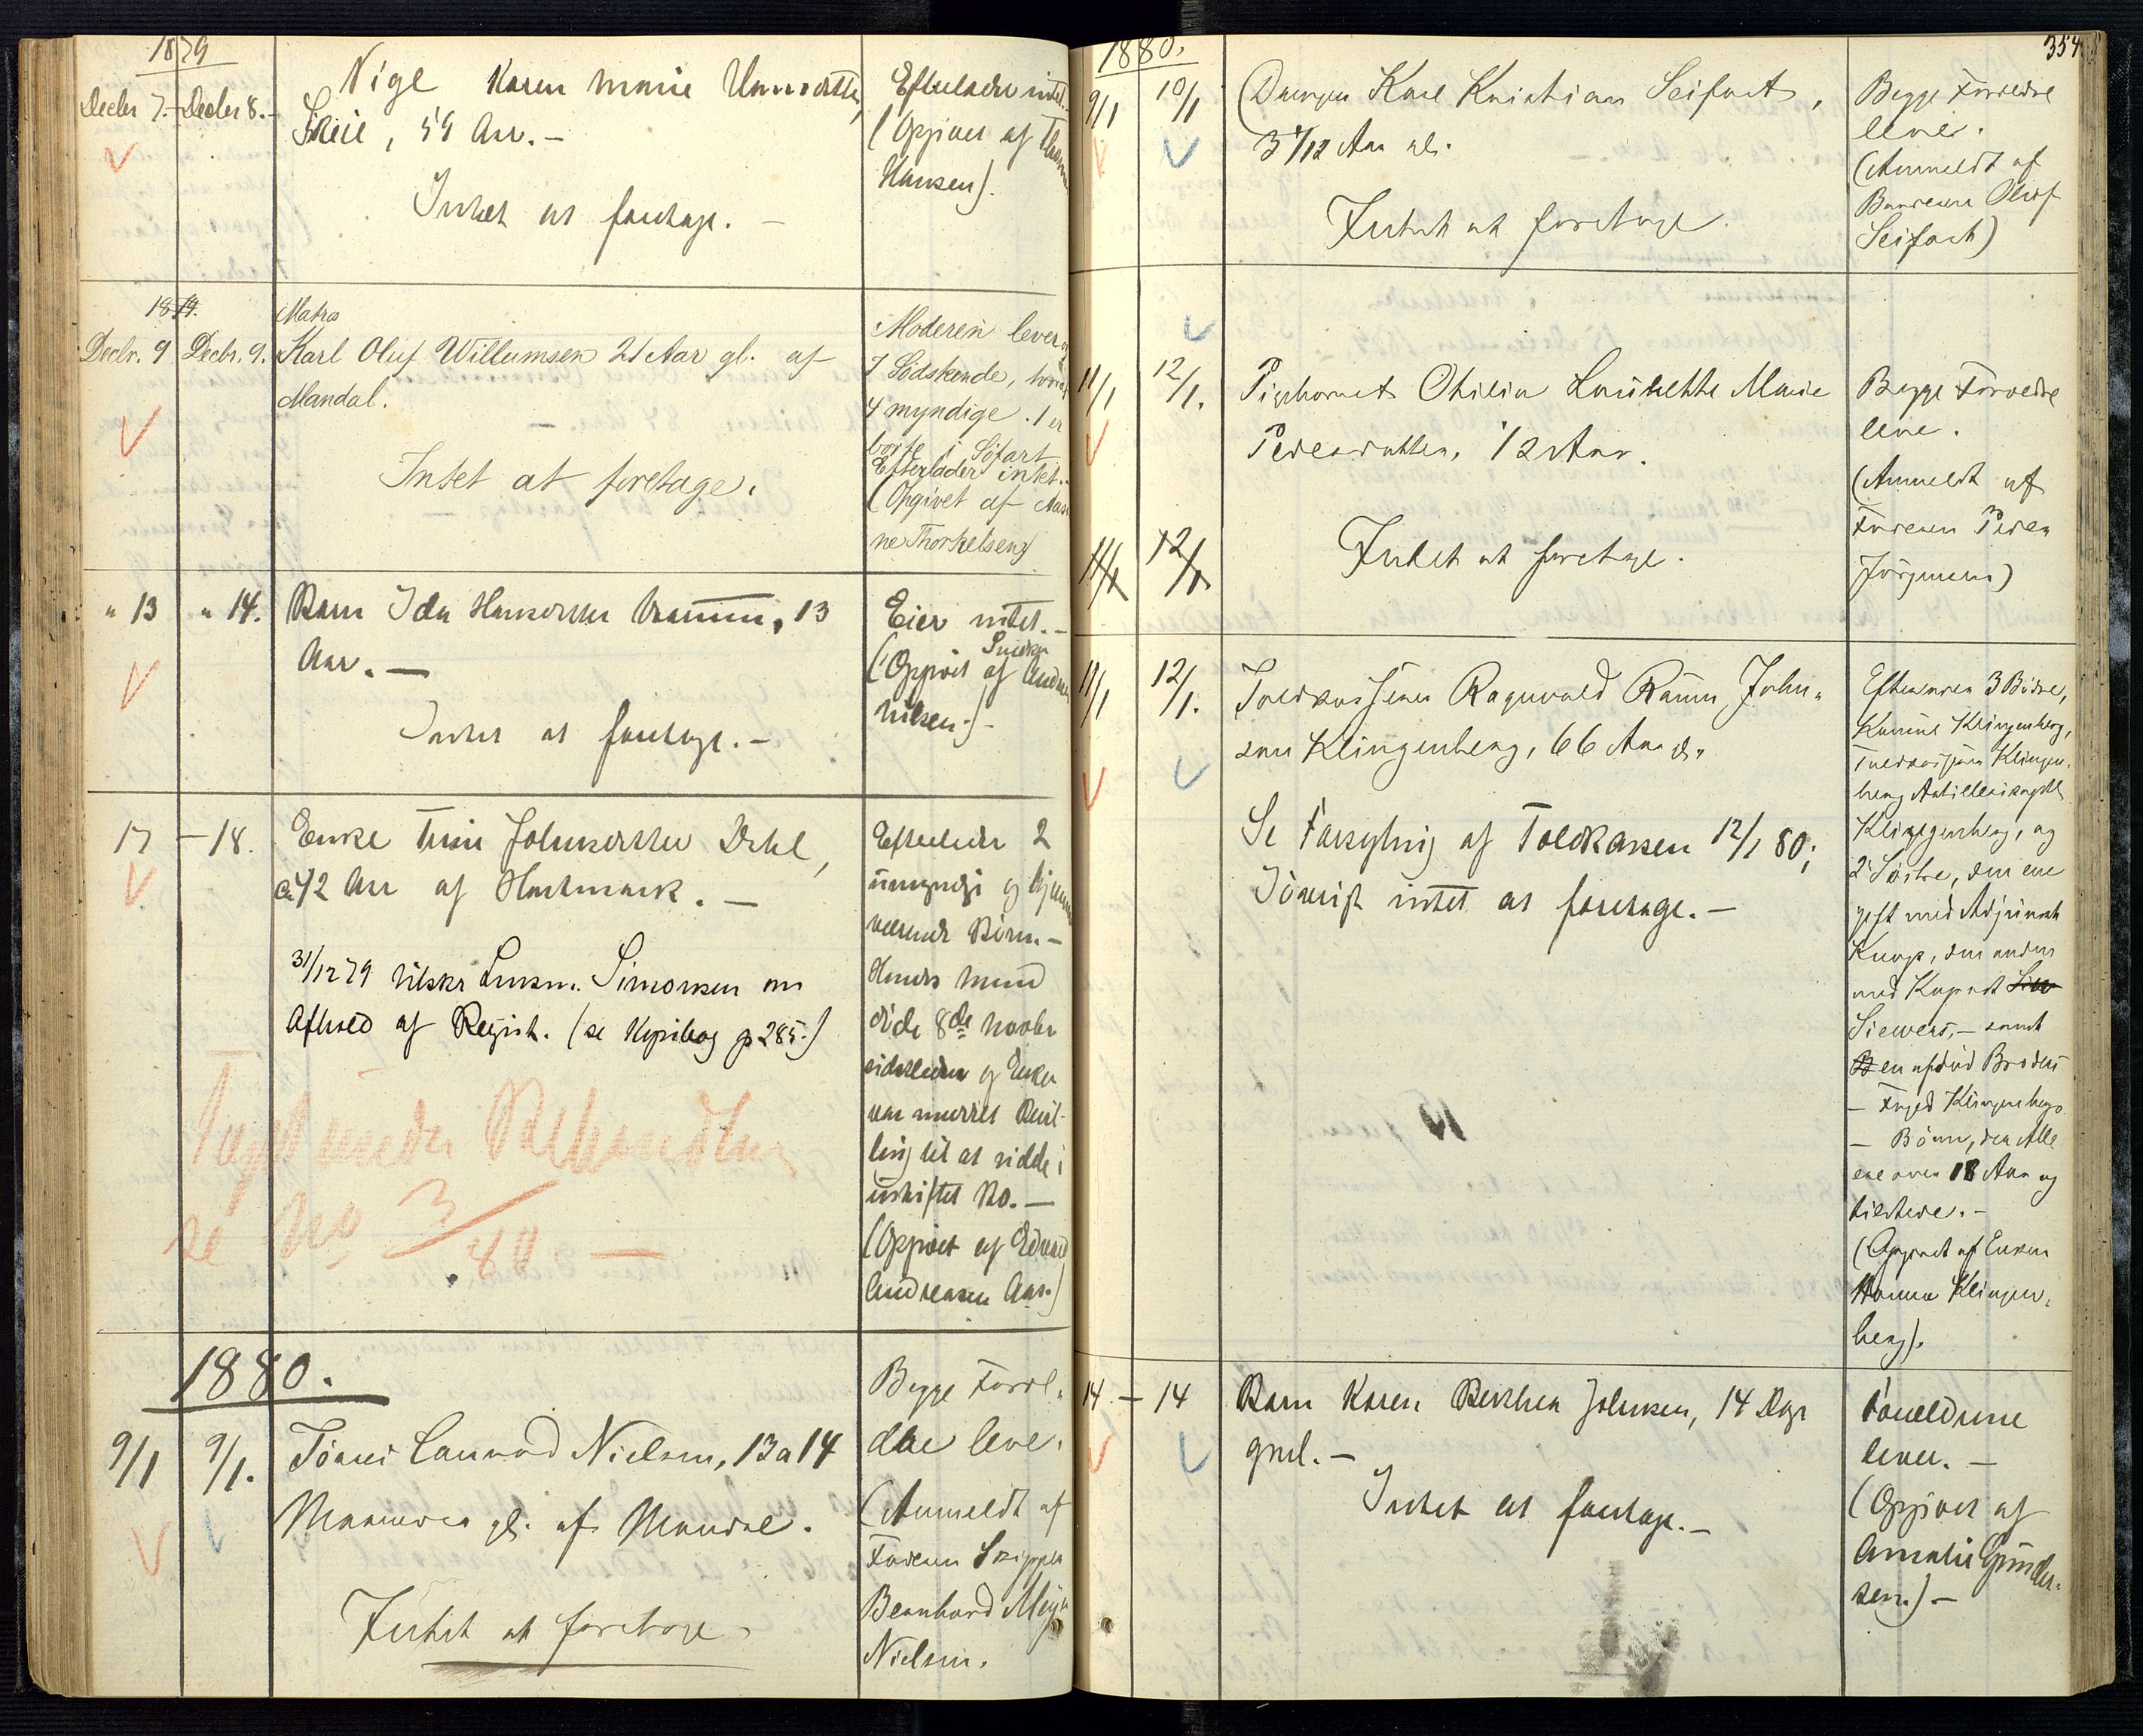 1879
Decbr 7. - Decbr 8. -
Karen Marie
Skeie, 59 Aar. -
Intet at foretage. -
Efterlader intet. -
(Opgivet af
Hansen).
1879.
Decbr. 9 Decbr. 9.
Matros
Karl Oluf Willumsen 21 Aar gl. af
Mandal.
Intet at foretage.
Moderen lever og
7 Södskende, hvoraf
4 myndige. 1 er
borte i Söfart.
Efterlader intet. -
(Opgivet af Aase
ne Thorkelsen)
" 13 " 14.
Barn Ida, 13
Aar. -
Intet at foretage. -
Eier intet. -
Snedker
(Opgivet af Andreas
Nilsen.) -
17 - 18.
Enke Trine Johnsdatter Dahl,
ca 42 Aar af Hestmark. -
31/12 79 tilskr. Lensm. Simonsen om
Afhold af Regist. (se Kopibog p 285.)
Taget under Behandling
se No 3/80. -
Efterlader 2
umyndige og hjemme
værende Börn. -
Hendes Mand
döde 8de Novbr
sidstleden og Enken
var meddelt Bevil-
ling til at sidde i
uskiftet Bo. -
(Opgivet af Edvard
Andreasen Aas.)
1880.
9/1 9/1.
Tönnes Conrad Nielsen, 13 a 14
Maaneder gl. af Mandal.
Intet at foretage.
Begge Foræl-
dre leve.
(Anmeldt af
Faderen Skipper
Bernhard Meyer
Nielsen.
354
1880.
9/1 10/1
Drengen Karl Kristian Seifart,
3 /12 Aar gl.
Intet at foretage.
Begge Forældre
lever.
(Anmeldt af
Oluf
Seifart)
11/1 12/1.
Pigebarnet Othilia Laurette Marie
Pedersdatter, 12 Aar.
Intet at foretage.
11/1 12/1
Begge Forældre
leve.
(Anmeldt af
Faderen Peder
Jörgensen)
11/1 12/1.
Toldkasserer Ragnvald Raum John-
sen Klingenberg, 66 Aar gl.
Se Forsegling af Toldkassen 12/1 80;
Iövrigt intet at foretage. -
Efterlader 3 Brödre,
Klingenberg,
Toldkasserer Klingen-
berg Artillerikapt.
Klingenberg, og
2 Söstre, den ene
gift med Adjunkt
Knap, den anden
med Kapt
Siewers, - samt
en afdöd Broders
- Foged Klingenbergs
- Börn, der Alle
ere over 18 Aar og
tilstede. -
(Opgivet af Enken
Hanna Klingen-
berg).
14 - 14
Barn Karen Berthea Johnsen, 14 Dage
gml. -
Intet at foretage. -
Forældrene
lever. -
(Opgivet af
Amalie Gunder-
sen.) -